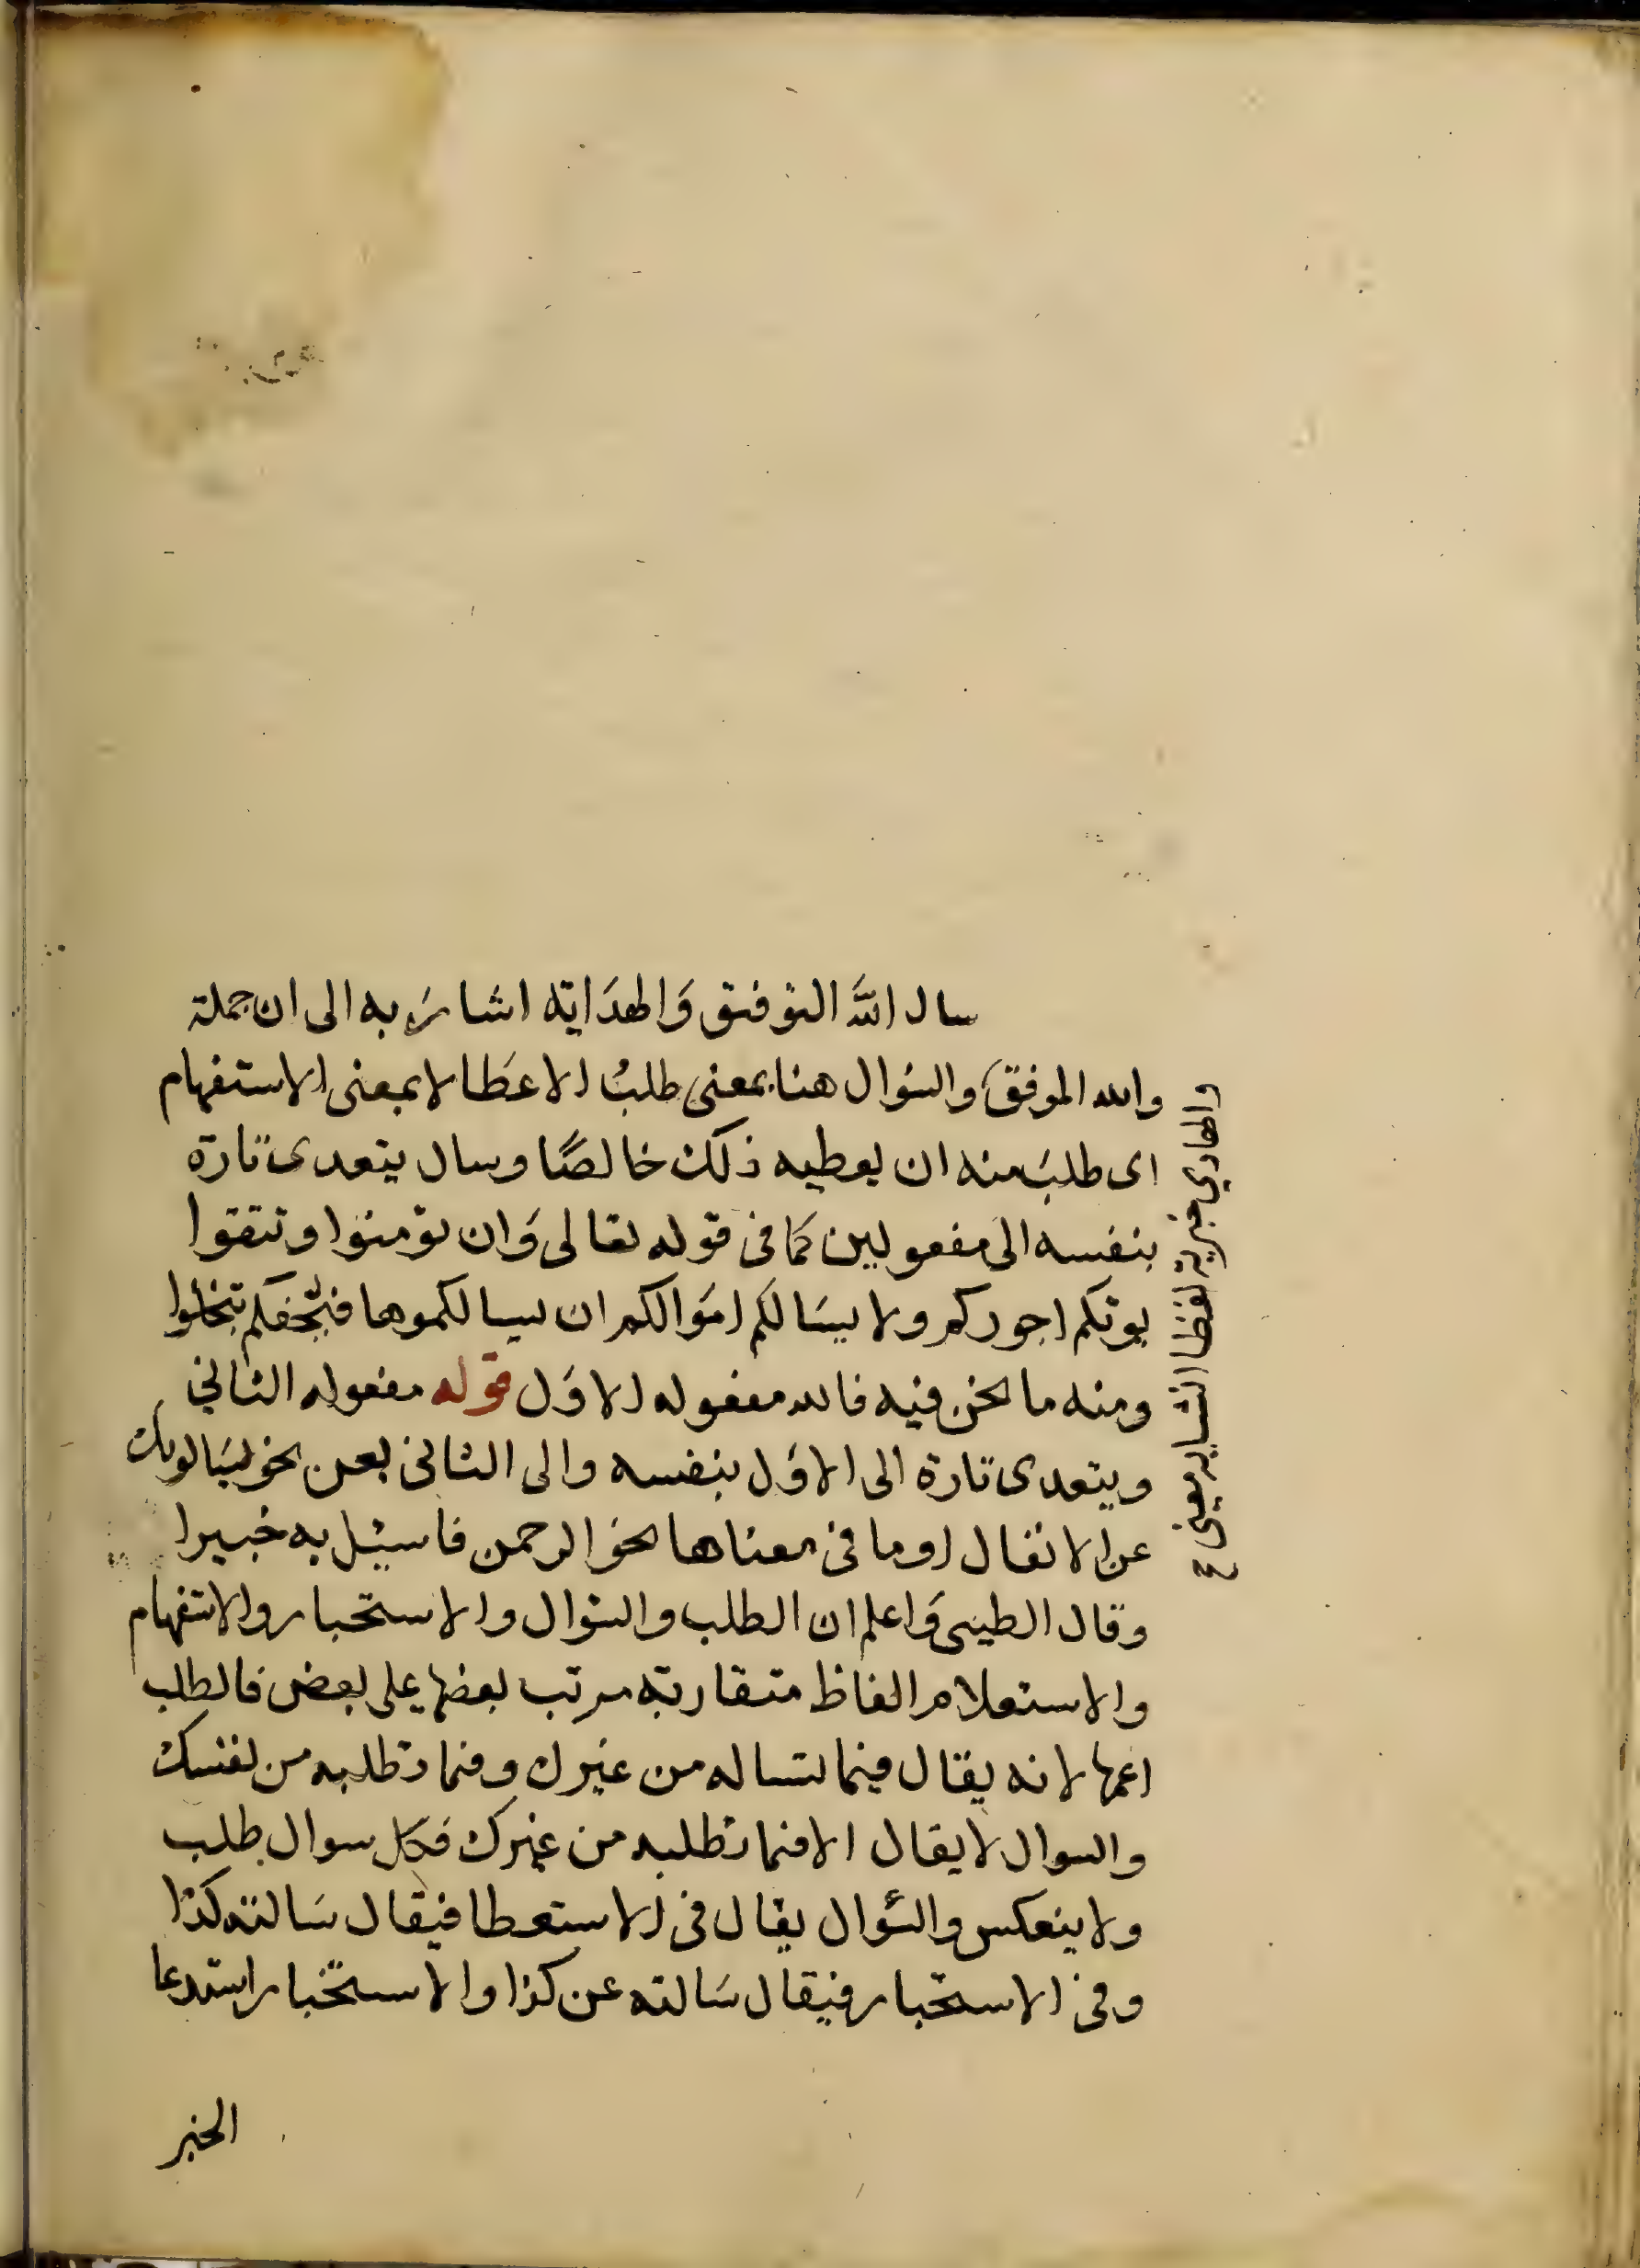 سال اللَّه التوفيق وَالهدَاية اشارَ به الى ان جملة
والله الموفق والسُوال هنا بمعنى طلبُ الاعطَا لا بمعنى الاستفهام
اى طلبَ منه ان يعطيه ذلك خالصًا وسال يتعدى تارة
بنفسه الى مفعولين كَما فى قوله تعالى وَان تؤمنوا وتتقوا
يوتكم اجوركم ولا يسَالكم امَوالكم ان يسالكموها فيُحْفكم تبخلوا
ومنه ما نحن فيه فالله مفعوله الاوَل قوله مفعوله الثانى
ويتعدى تارة الى الاوَل بنفسه والى الثانى بعن نحو يسَالونك
عن الانفال او ما فى معناها نحو الرحمن فاسئل به خبيرا
وقال الطيبى وَاعلم ان الطلب والسُوال والاستخبار والاستفهام
والاستعلام الفاظ متقاربة مرتب بعضها على بعض فالطلب
اعمها لانه يقال فيما تساله من غيرك وفيما تطلبه من نفسك
والسوال لا يقال الا فيما تطلبه من غيرك فكل سوال طلب
ولا ينعكس والسُوال يقال فى الاستعطا فيقال سَالته كذا
وفى الاستخبار فيقال سَالته عن كذا والاستخبار استدعا
الخبر
والهادي خبرية لفظا انشايه معنى ع